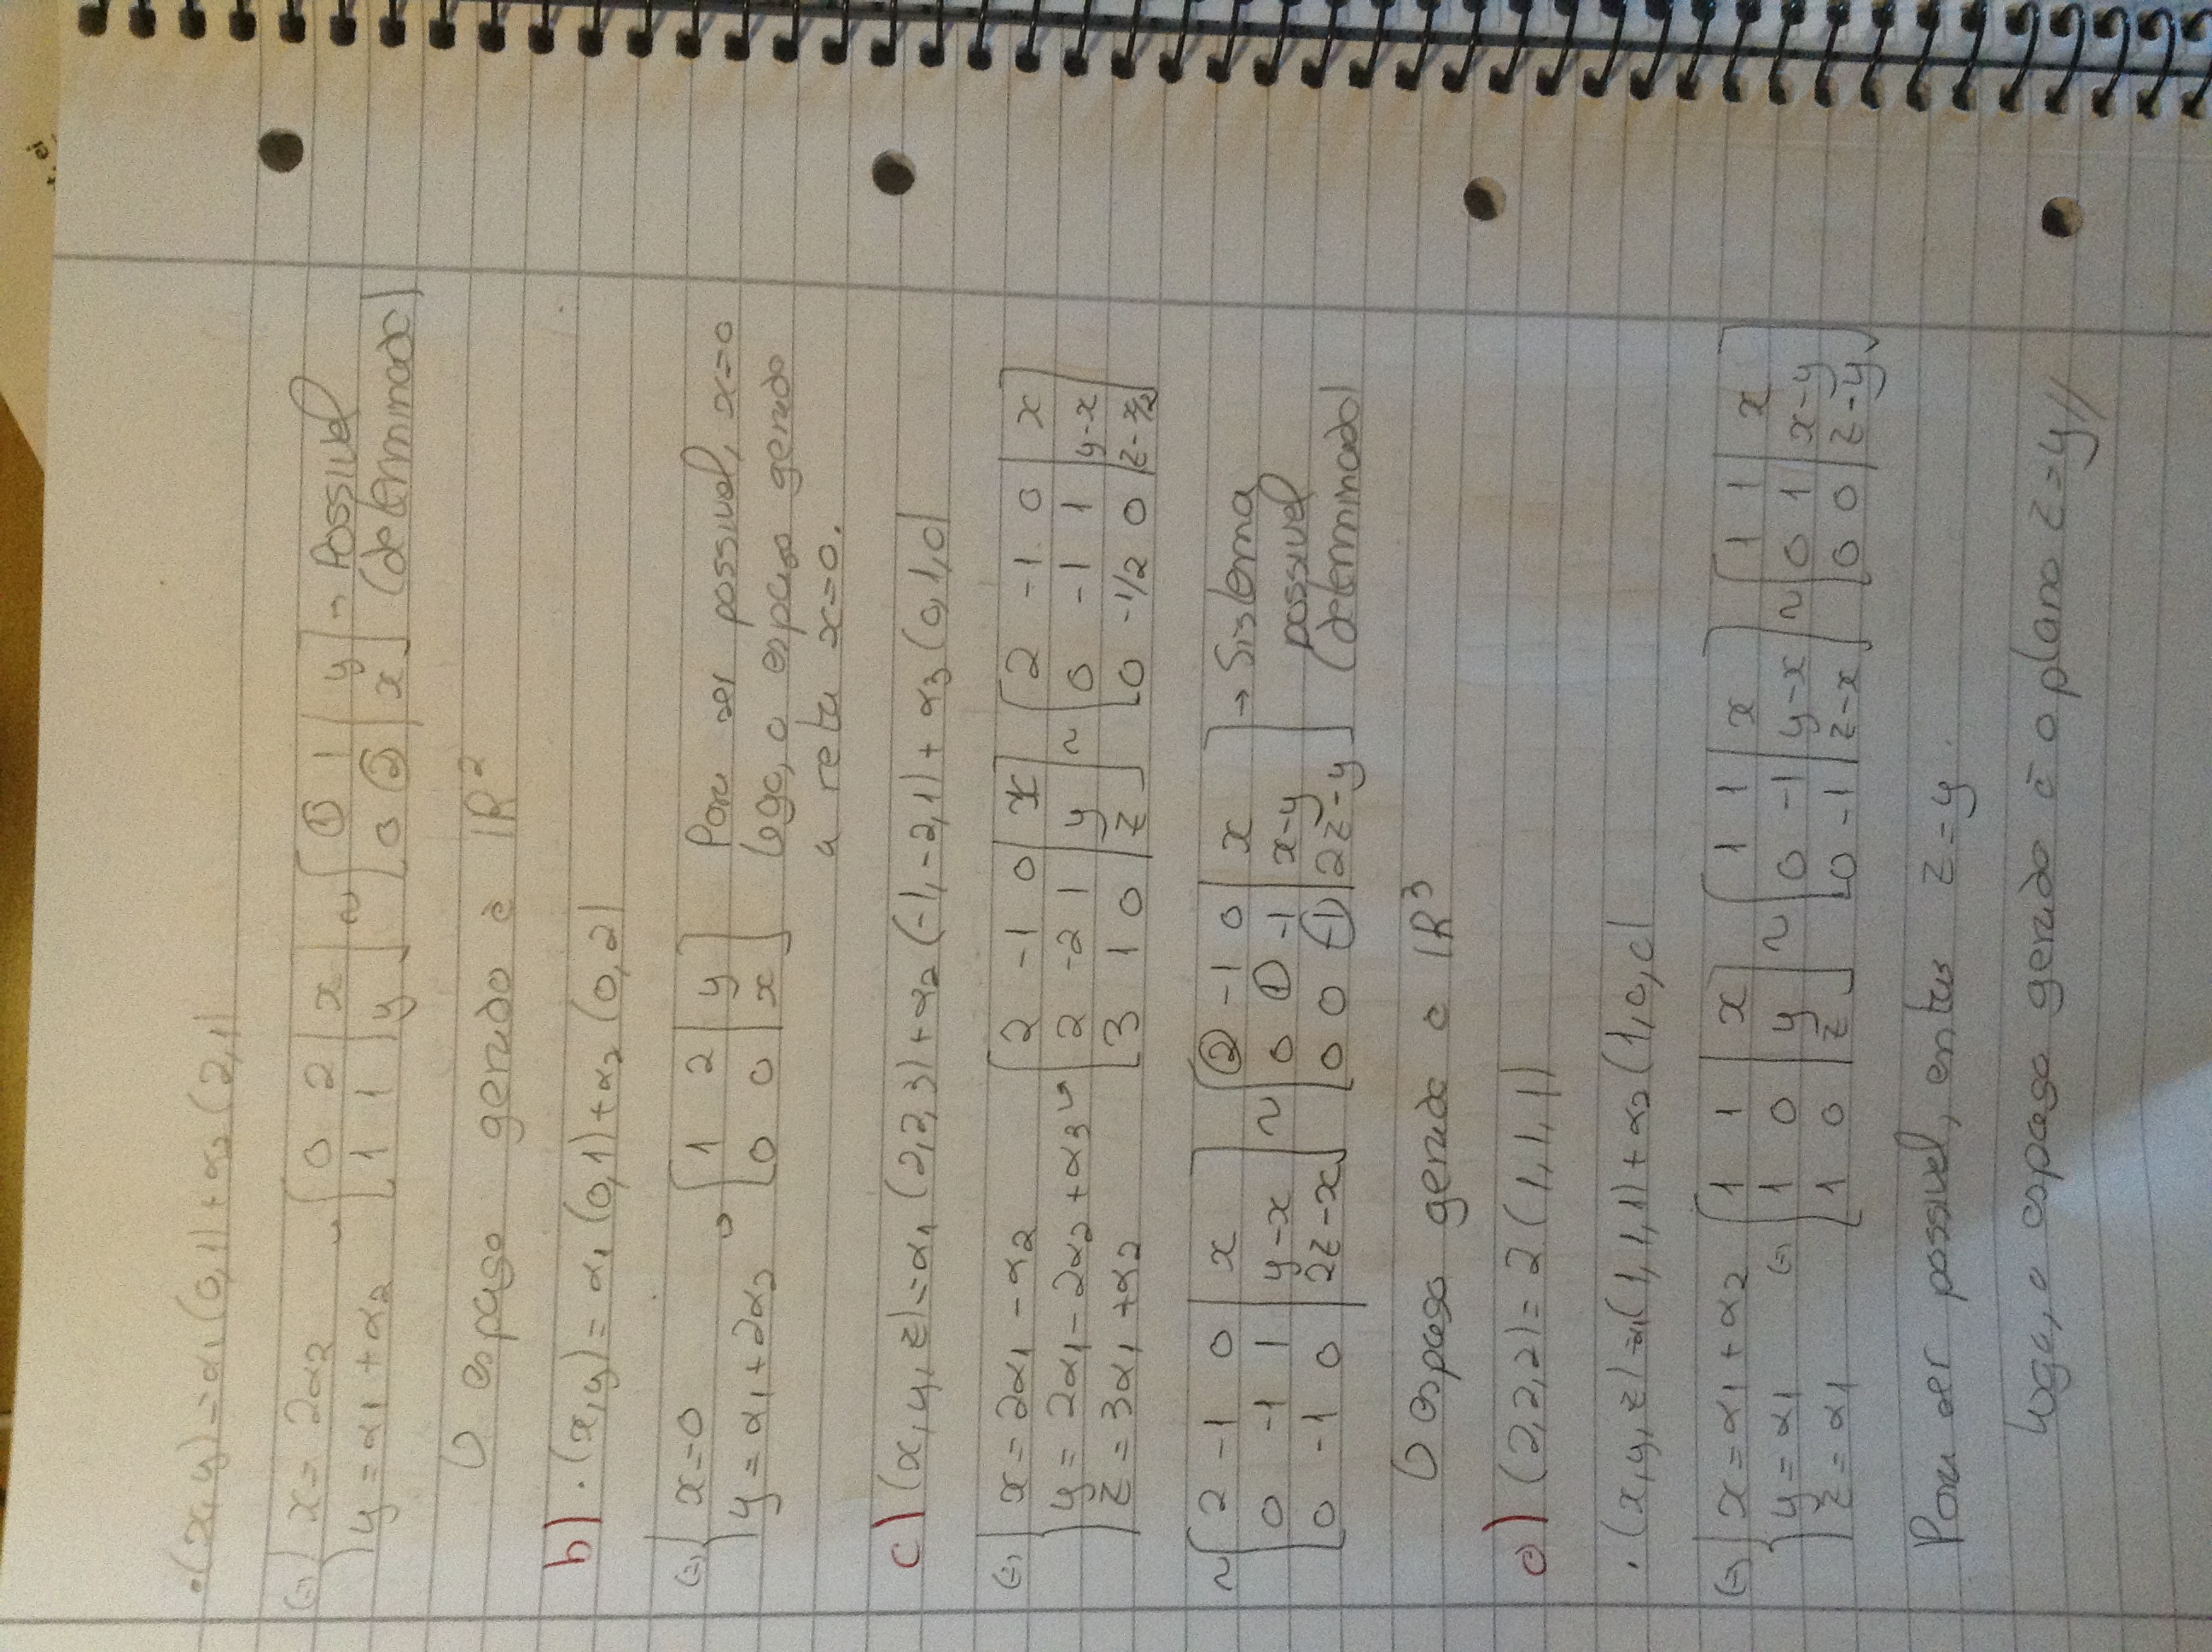 ei
·(x,y)=α1(0,1)+α2(2,1)
(=) { x=2α2
y=α1+α2 → [0 2 | x
1 1 | y] ~ [1 1 | y
0 2 | x] → Possivel
(determinado)
O espaço gerado é IR²
b) ·(x,y)= α1(0,1)+α2(0,2)
(=) { x=0
y=α1+2α2 → [1 2 | y
0 0 | x] Para ser possivel, x=0
logo, o espaço gerado
a reta x=0.
c) (x,y,z)=α1(2,2,3)+α2(-1,-2,1)+α3(0,1,0)
(=) { x=2α1-α2
y=2α1-2α2+α3
z=3α1+α2 → [2 -1 0 | x
2 -2 1 | y
3 1 0 | z] ~ [2 -1 0 | x
0 -1 1 | y-x
0 -1/2 0 | z-x/2]
~ [2 -1 0 | x
0 -1 1 | y-x
0 -1 0 | 2z-x] ~ [2 -1 0 | x
0 1 -1 | x-y
0 0 -1 | 2z-y] → Sistema
possivel
(determinado)
O espaço gerado é IR³
d) (2,2,2)=2(1,1,1)
·(x,y,z)=α1(1,1,1)+α2(1,0,0)
(=) { x=α1+α2
y=α1
z=α1 (=) [1 1 | x
1 0 | y
1 0 | z] ~ [1 1 | x
0 -1 | y-x
0 -1 | z-x] ~ [1 1 | x
0 1 | x-y
0 0 | z-y]
Para ser possivel, entao z=y.
logo, o espaço gerado é o plano z=y//